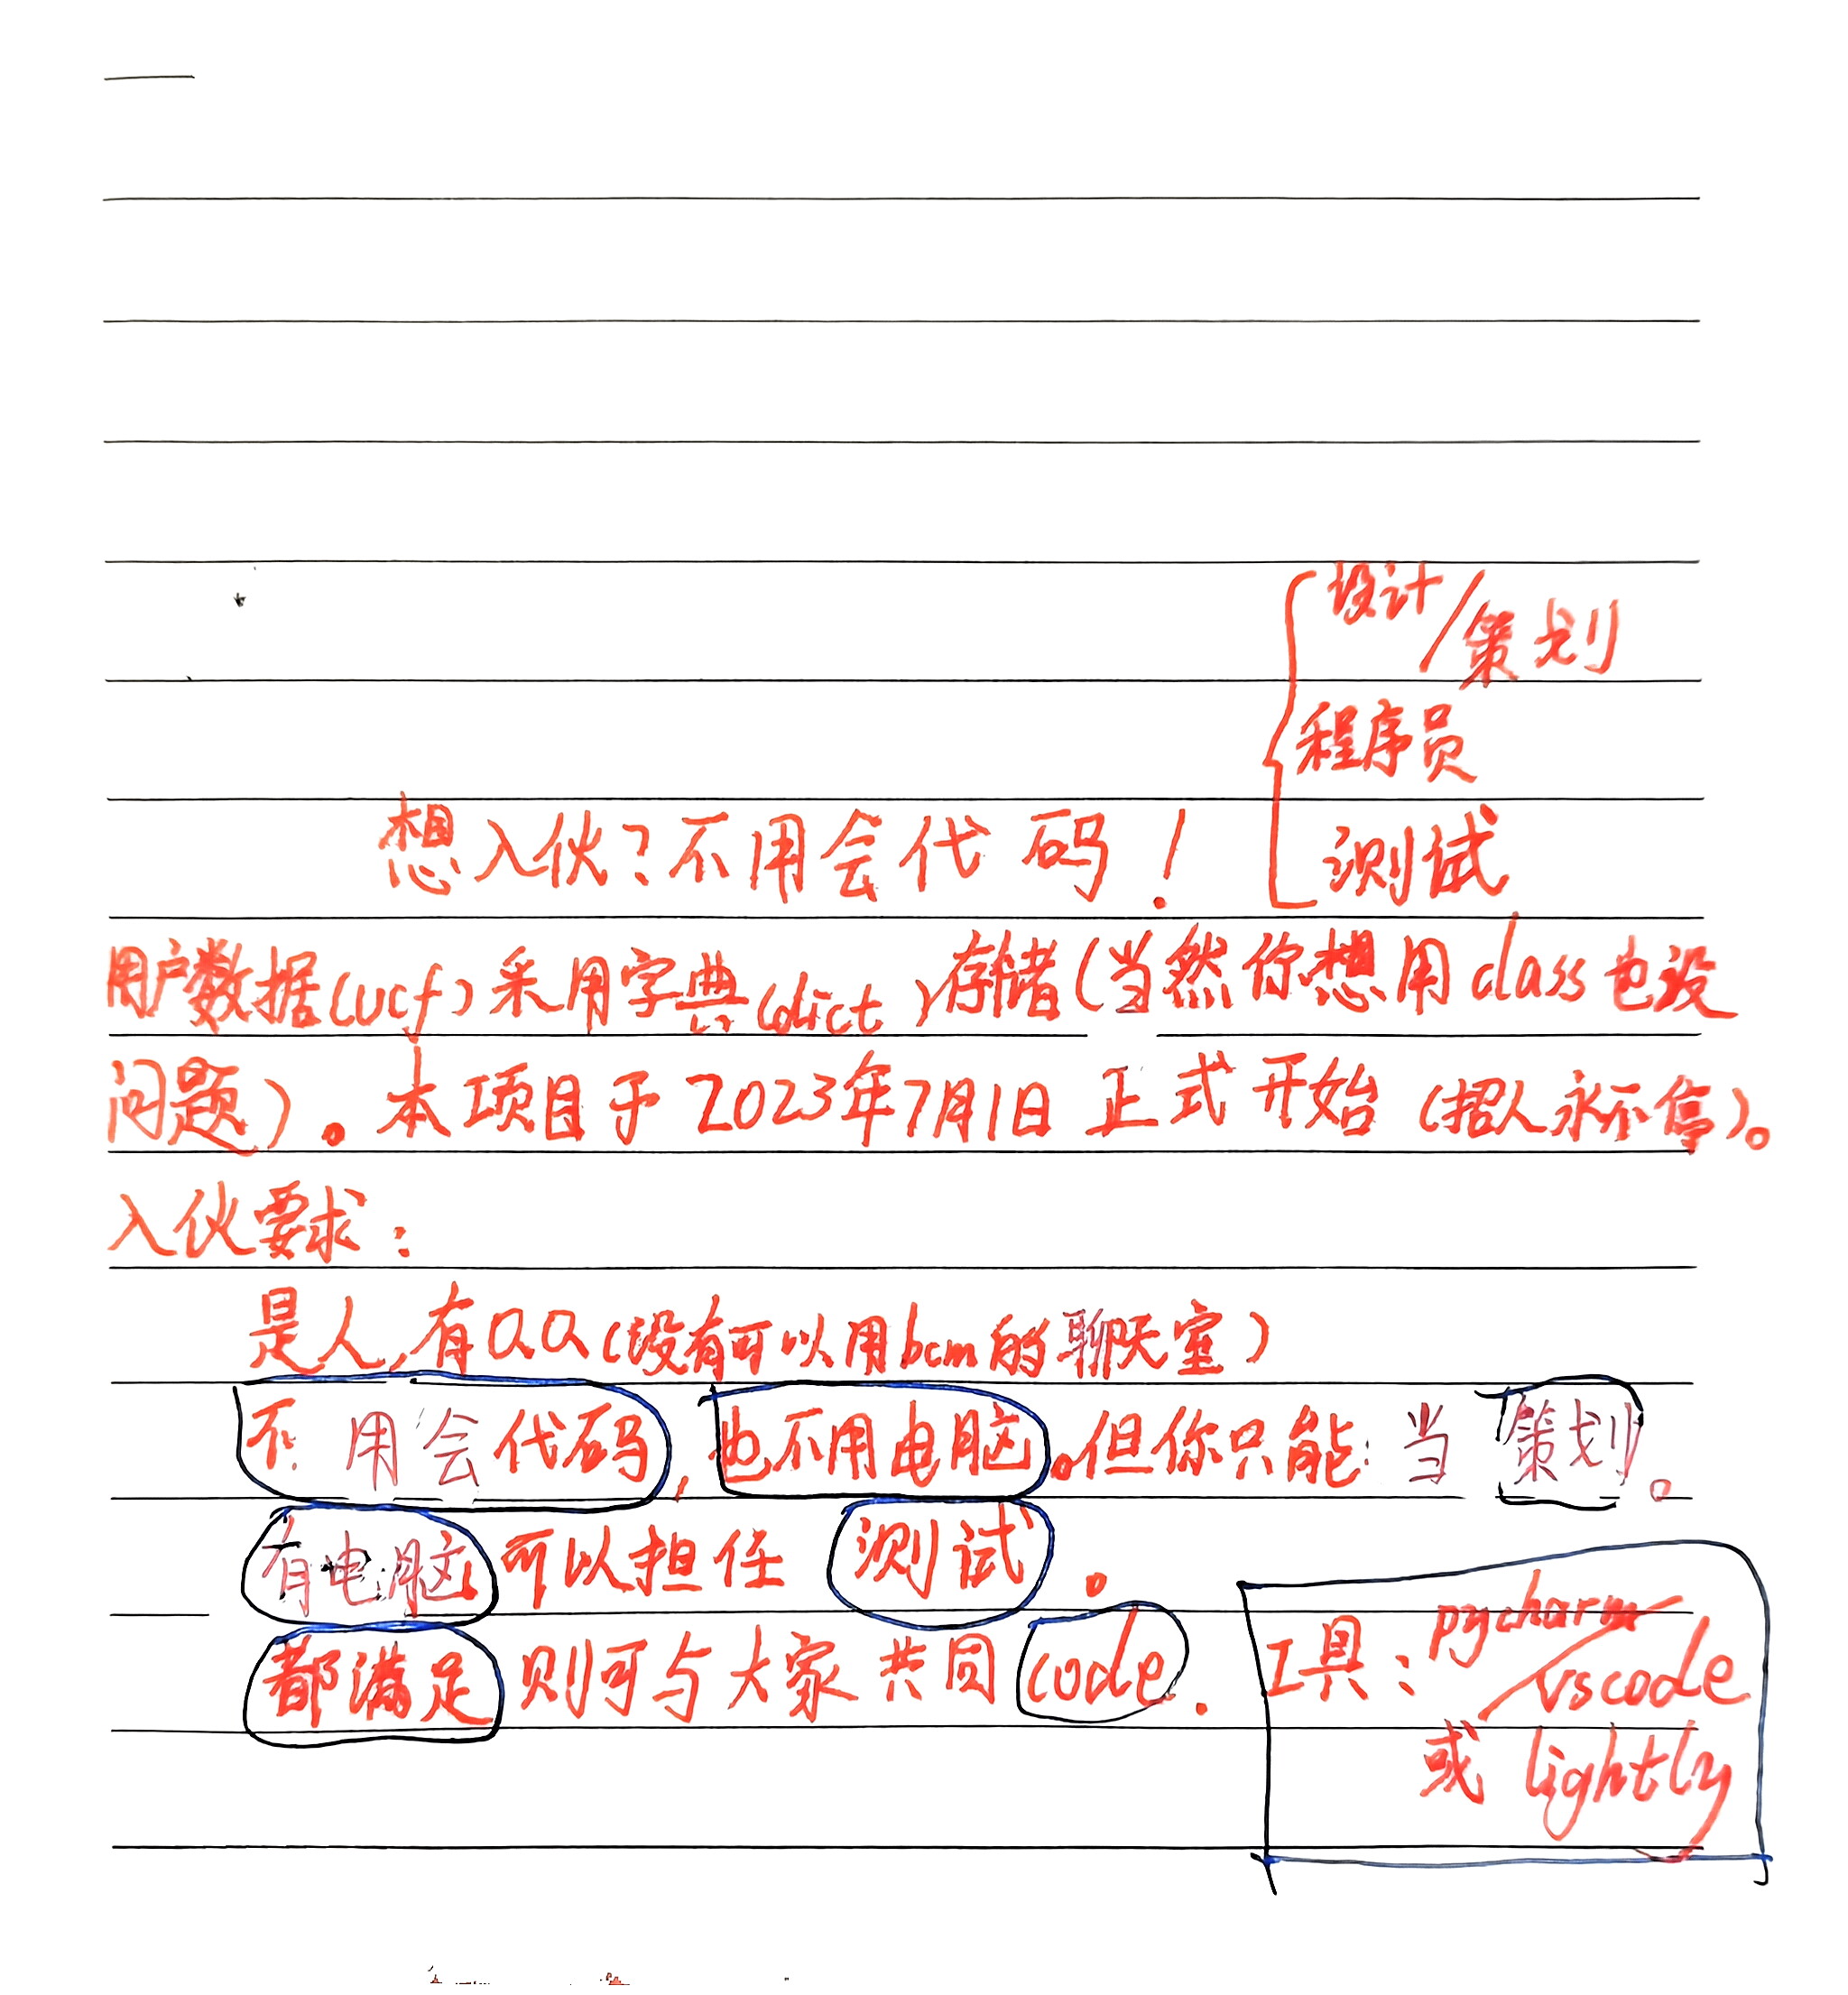 设计/策划
程序员
测试
想入伙?不用会代码!
用户数据(ucf)采用字典(dict)存储(当然你想用class也没
问题)。本项目于2023年7月1日正式开始(招人永不停)。
入伙要求:
是人,有QQ(没有可以用bcm的聊天室)
不用会代码,也不用电脑。但你只能当策划。
有电脑可以担任测试。
都满足则可与大家共同code.
工具:pycharm
/vscode
或lightly